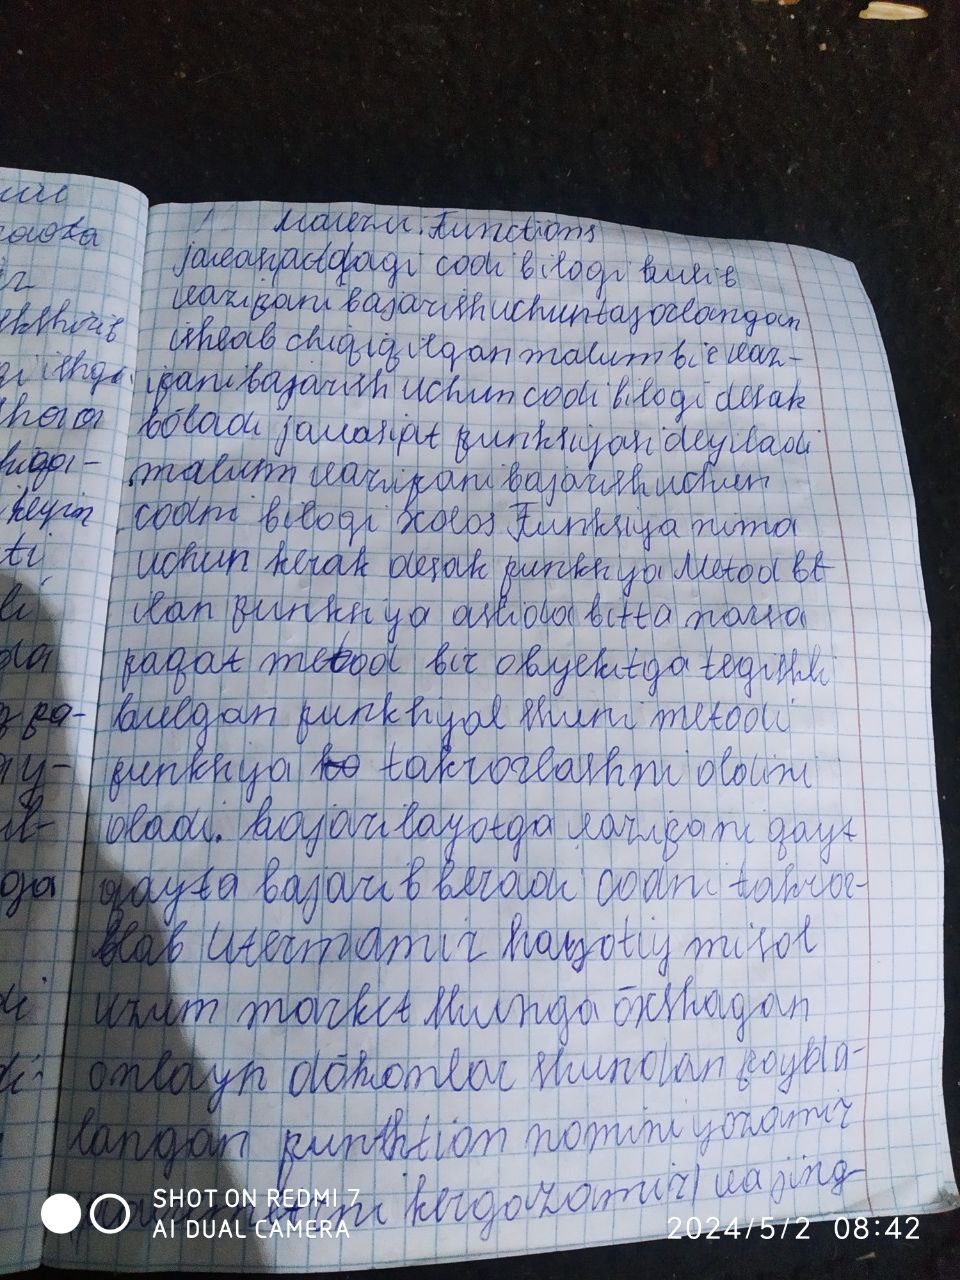 Mavzu: Functions
javascriptdagi codi bilogi bulib
vazifani bajarish uchun tasorlangan
ishlab chiqiqilgan malum bir vaz-
ifani bajarish uchun codi bilogi desak
bōladi javasript funksiyasi deyiladi
malum vazifani bajarish uchun
codni bilogi xolos Funksiya nima
uchun kerak desak funksiya Metod bt
ilan funksiya aslida bitta narsa
faqat metod bir obyektga tegishli
bulgan funksiyal shuni metodi
funksiya takrorlashni oldini
oladi. bajarilayotga vazifani qayt
qayta bajarib beradi codni takror-
lab utermamiz hayotiy misol
uzum market shunga ōxshagan
onlayn dōkonlar shundan foyda-
langan funthtion nomini yozamiz
kirgazamiz
uu
di
ga
keyin
ti
li
SHOT ON REDMI 7
AI DUAL CAMERA
2024/5/2 08:42